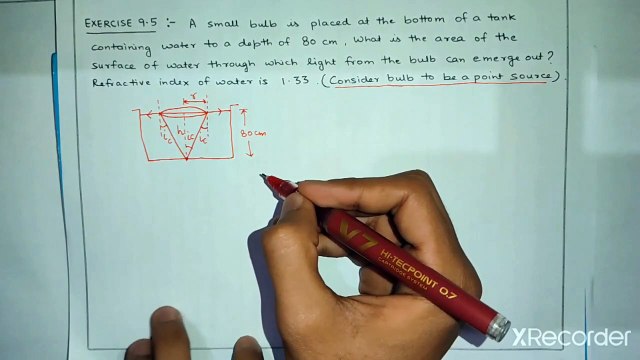 EXERCISE 9.5 :- A small bulb is placed at the bottom of a tank
containing water to a depth of 80 cm, What is the area of the
surface of water through which light from the bulb can emerge out?
Refractive index of water is 1.33. (Consider bulb to be a point source).
r
ic h ic ic
80cm
V7
HI-TECPOINT 0.7
CARTRIDGE SYSTEM
XRecorder